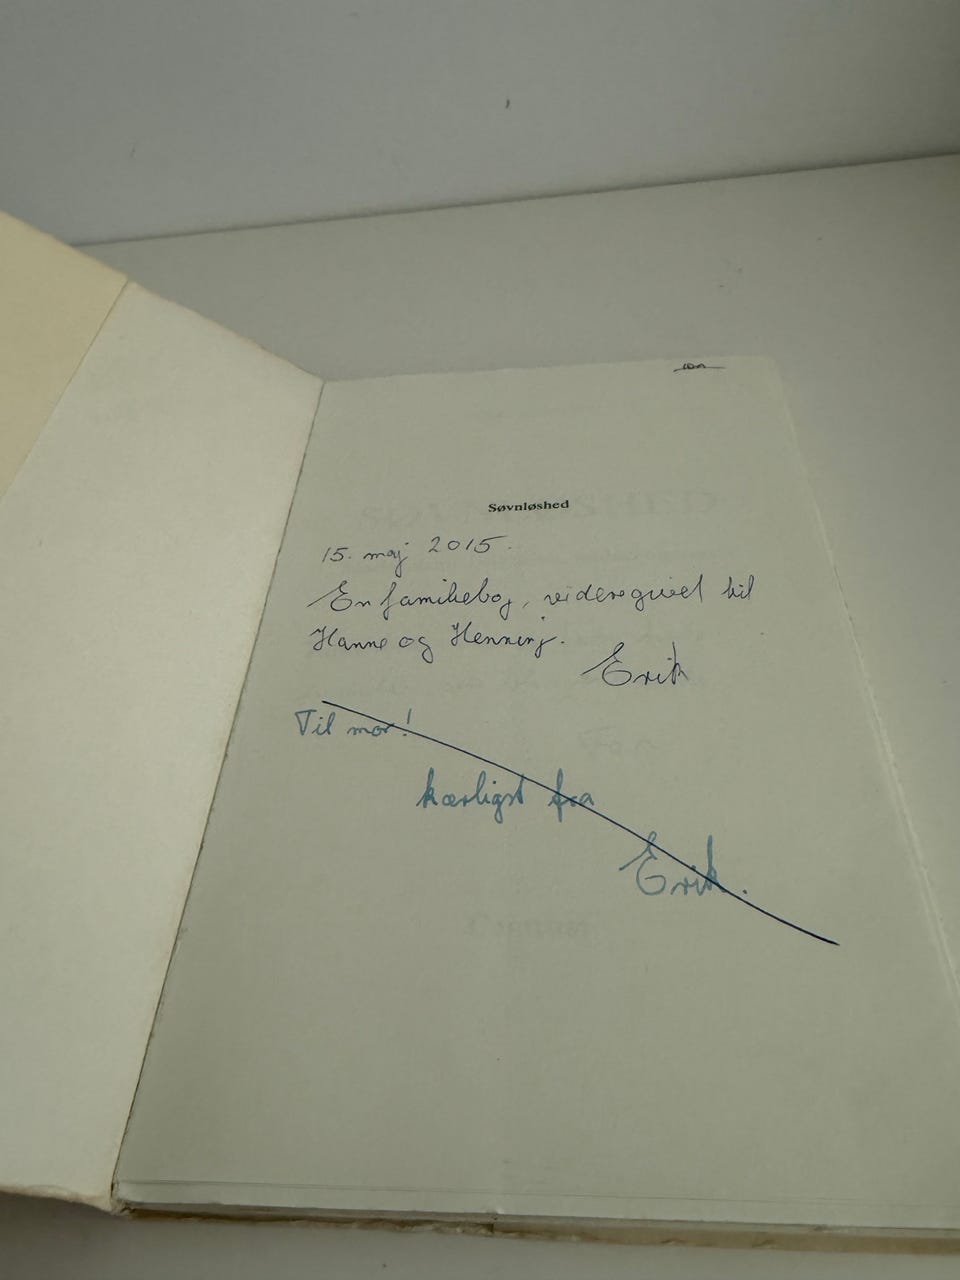 Søvnløshed
15. maj 2015.
En familiebog, videregivet til
Hanne og Henning.
Erik
Til mor!
kærligst fra
Erik.